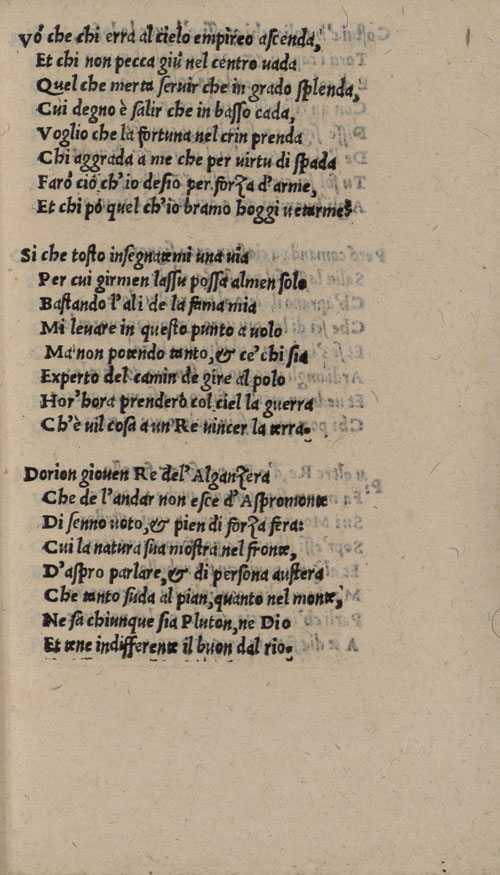 Vó che chi erra al cielo empireo ascenda,
Et chi non pecca giú nel centro uada
Quel che merta seruir che in grado splenda,
Cui degno è salir che in basso cada,
Voglio che la fortuna nel crin prenda
Chi aggrada a me che per uirtu di spada
Faró ció ch'io desio per forza d'arme,
Et chi pó quel ch'io bramo hoggi uetarme?
Si che tosto insegnatemi una uia
Per cui girmen lassu possa almen solo
Bastando l'ali de la fama mia
Mi leuare in questo punto a uolo
Ma non potendo tanto, & ce' chi sia
Experto del camin de gire al polo
Hor' hora prenderò col ciel la guerra
Ch'è uil cosa a un Re uincer la terra.
Dorion giouen Re del' Alganzera
Che de l'andar non esce d'Aspromonte
Di senno uoto, & pien di forza fera:
Cui la natura sua mostra nel fronte,
D'aspro parlare, & di persona austera
Che tanto suda al pian, quanto nel monte,
Ne sa chiunque sia Pluton, ne Dio
Et tene indifferente il buon dal rio.